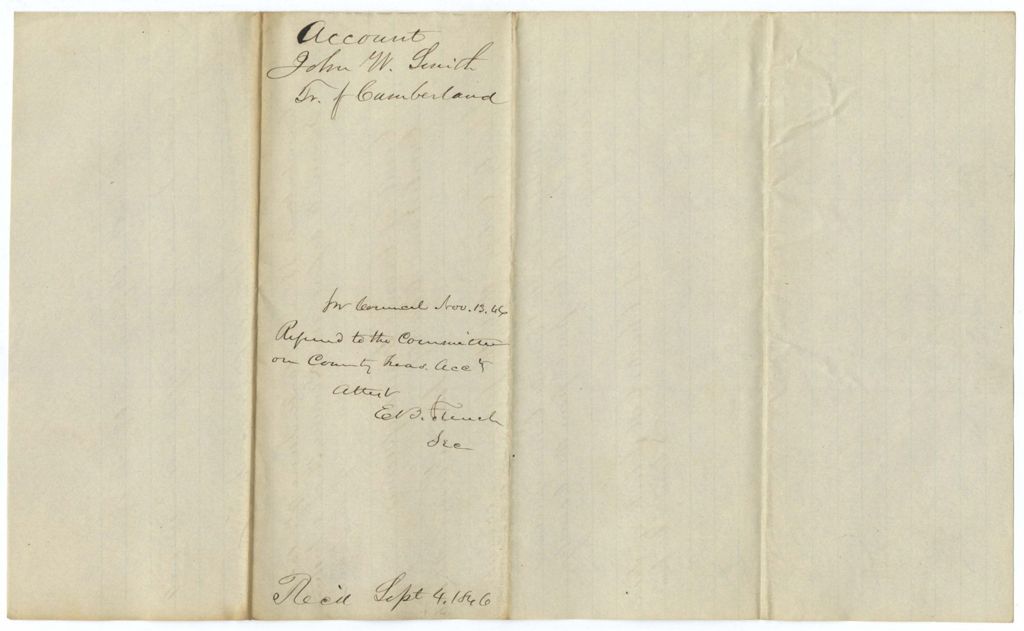 Account
John W. Smith
Tr. of Cumberland
In Council Nov. 13. 46
Referred to the Committee
on County Treas. Acc'ts
Attest
E.B. French
Sec
Rec'd Sept 4. 1846